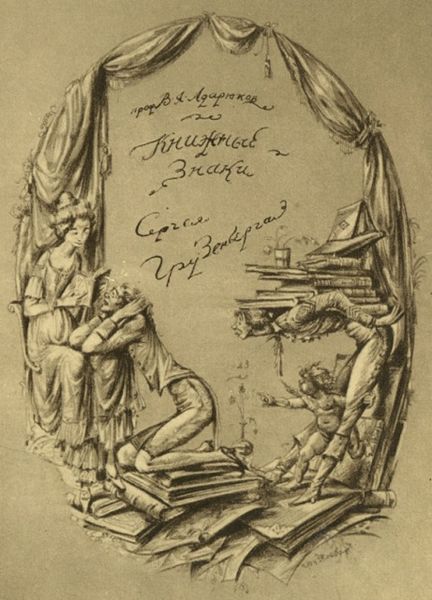 проф В. Я. Адарюков
Книжные
Знаки
Сергея
Грузенберга